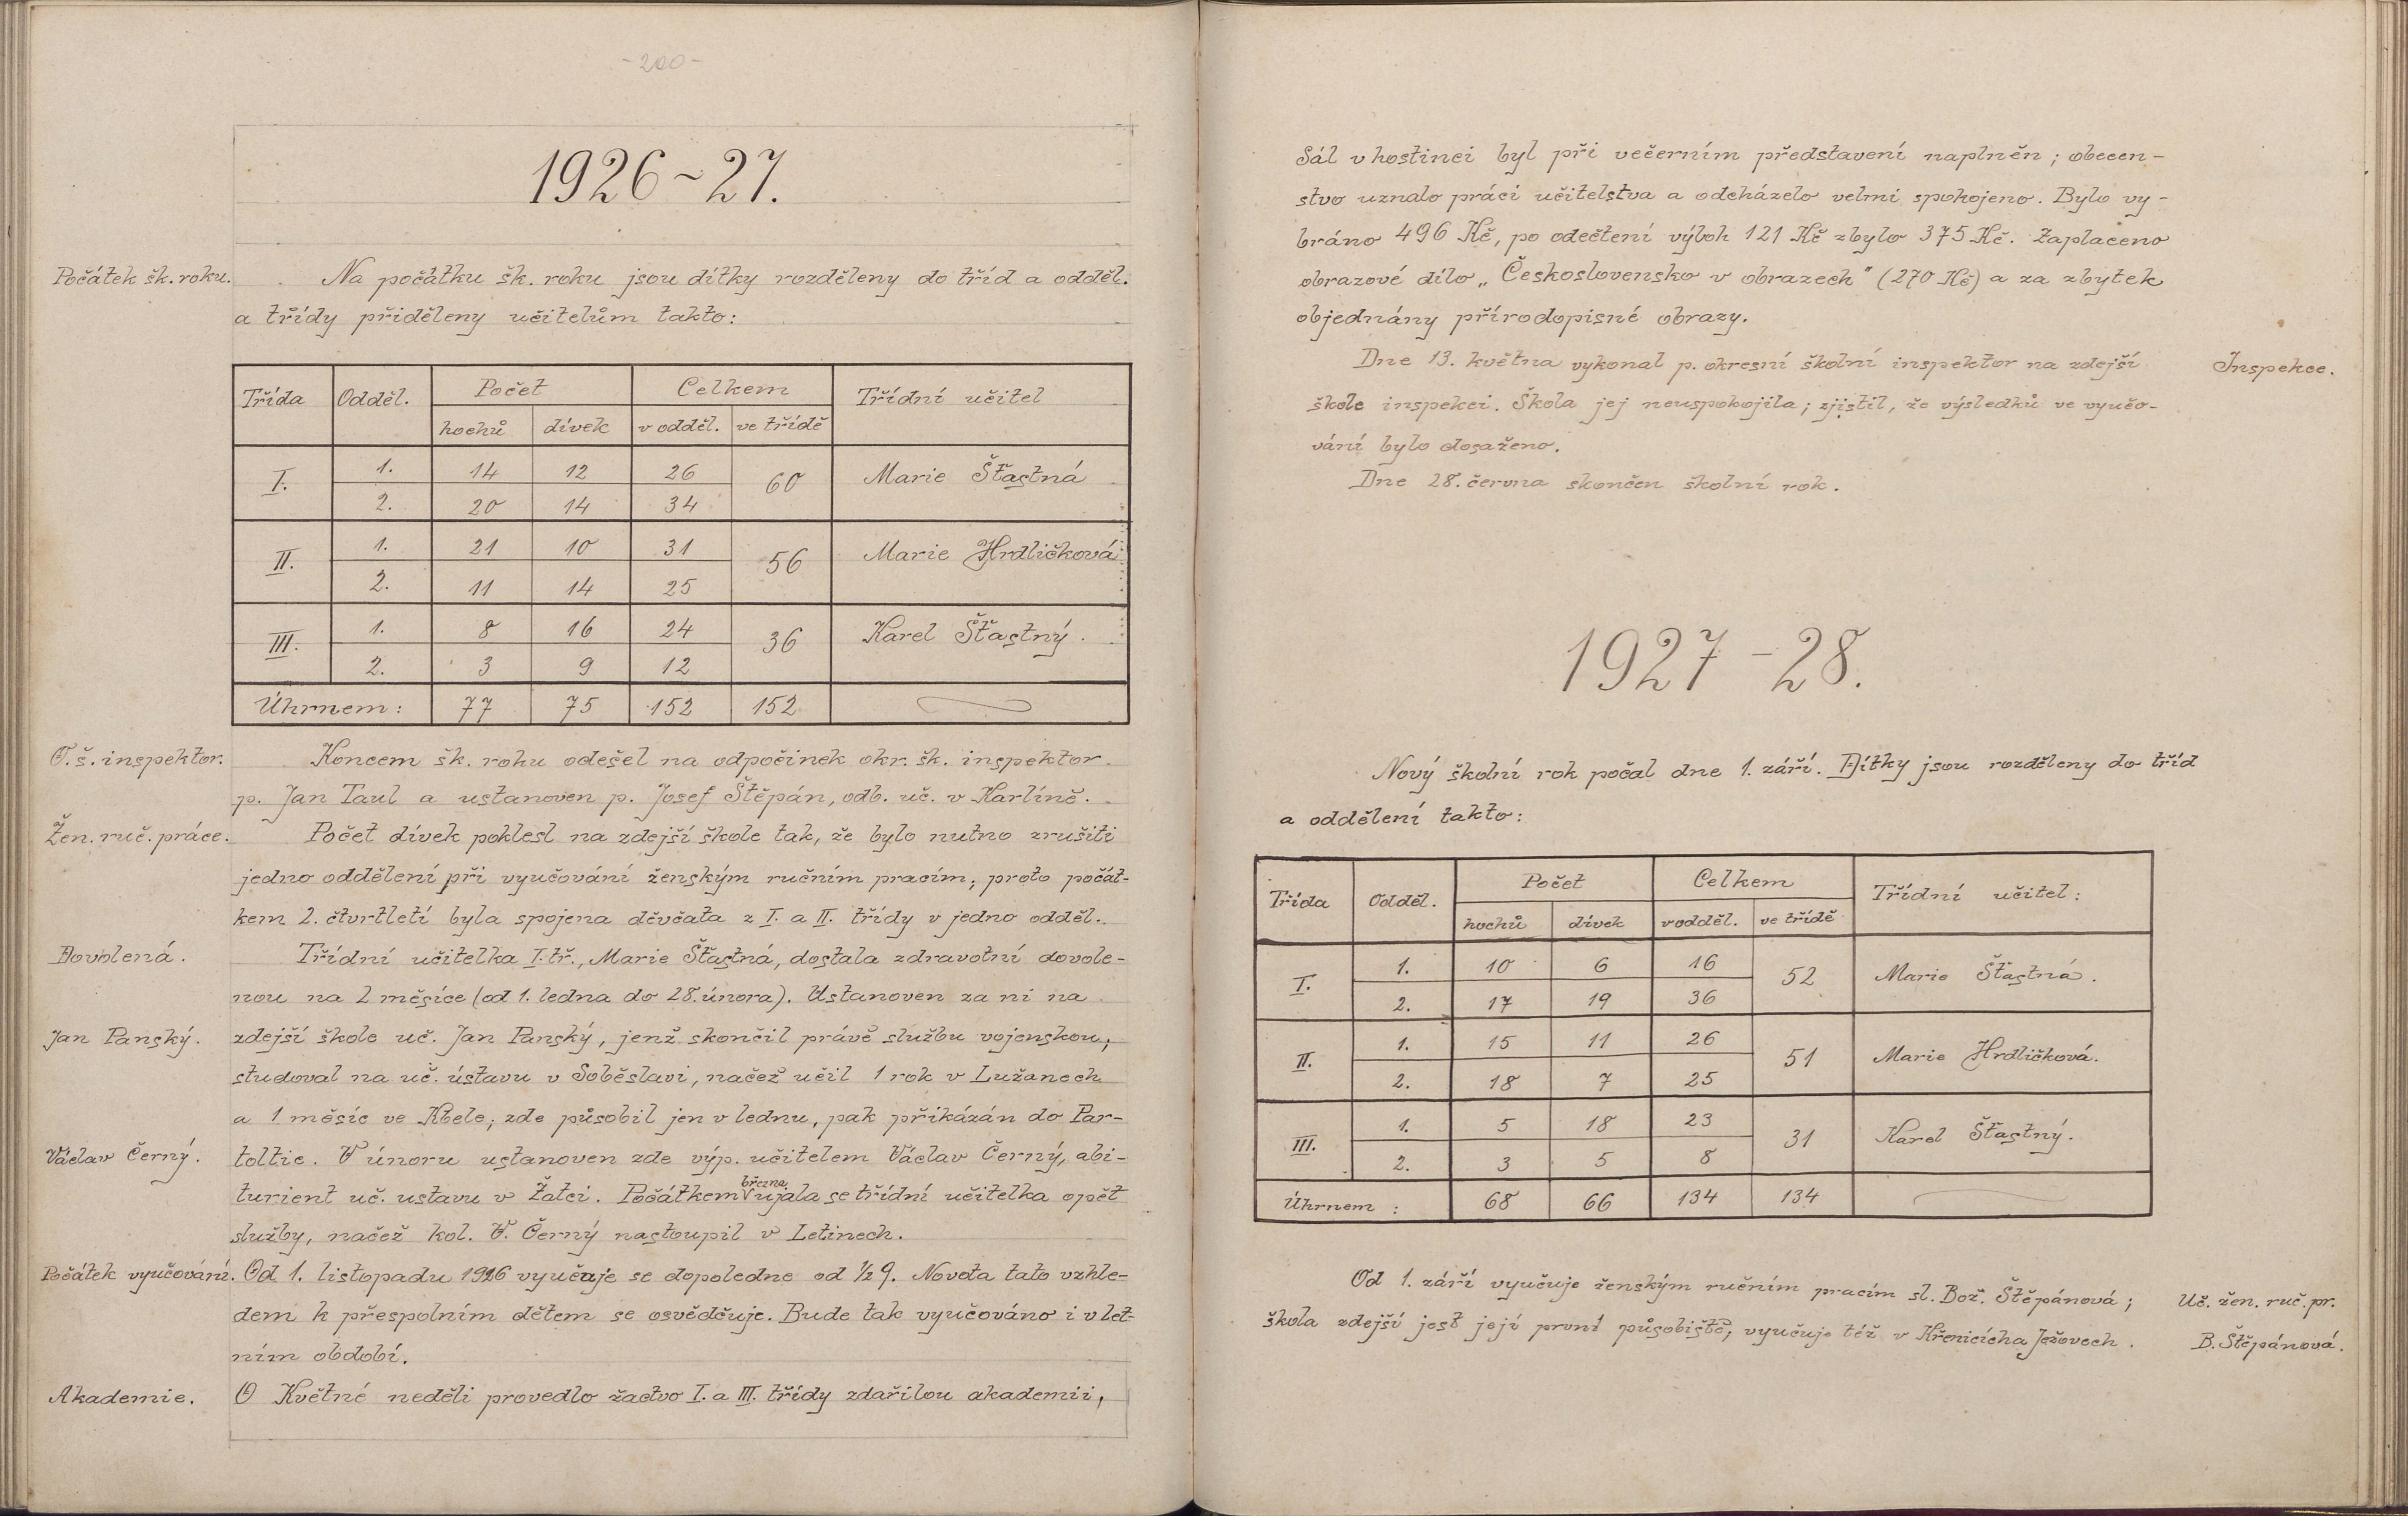 -200-
1926-27.
Počátek šk. roku.
Na počátku šk. roku jsou dítky rozděleny do tříd a odděl.
a třídy přiděleny učitelům takto:
Třída Odděl. Počet Celkem Třídní učitel
hochů dívek v odděl. ve třídě
I. 1. 14 12 26 60 Marie Šťastná
2. 20 14 34
II. 1. 21 10 31 56 Marie Hrdličková
2. 11 14 25
III. 1. 8 16 24 36 Karel Šťastný.
2. 3 9 12
Úhrnem: 77 75 152 152
O. š. inspektor.
Koncem šk. roku odešel na odpočinek okr. šk. inspektor
p. Jan Taul a ustanoven p. Josef Štěpán, odb. uč. v Karlíně.
Žen. ruč. práce.
Počet dívek poklesl na zdejší škole tak, že bylo nutno zrušiti
jedno oddělení při vyučování ženským ručním pracím; proto počát-
kem 2. čtvrtletí byla spojena děvčata z I. a II. třídy v jedno odděl.
Dovolená.
Třídní učitelka I. tř., Marie Šťastná, dostala zdravotní dovole-
nou na 2 měsíce (od 1. ledna do 28. února). Ustanoven za ni na
Jan Panský.
zdejší škole uč. Jan Panský, jenž skončil právě službu vojenskou;
studoval na uč. ústavu v Soběslavi, načež učil 1 rok v Lužanech
a 1 měsíc ve Kbele; zde působil jen v lednu, pak přikázán do Par-
Václav Černý.
toltic. V únoru ustanoven zde výp. učitelem Václav Černý, abi-
turient uč. ustavu v Žatci. Počátkem března ujala se třídní učitelka opět
služby, načež kol. V. Černý nastoupil v Letinech.
Počátek vyučování.
Od 1. listopadu 1926 vyučuje se dopoledne od ½ 9. Novota tato vzhle-
dem k přespolním dětem se osvědčuje. Bude tak vyučováno i v let-
ním období.
Akademie.
O Květné neděli provedlo žactvo I. a III. třídy zdařilou akademii,
Sál v hostinci byl při večerním představení naplněn; obecen-
stvo uznalo práci učitelstva a odcházelo velmi spokojeno. Bylo vy-
bráno 496 Kč, po odečtení výloh 121 Kč zbylo 375 Kč. Zaplaceno
obrazové dílo „Československo v obrazech" (270 Kč) a za zbytek
objednány přírodopisné obrazy.
Dne 13. května vykonal p. okresní školní inspektor na zdejší
Inspekce.
škole inspekci. Škola jej neuspokojila; zjistil, že výsledků ve vyučo-
vání bylo dosaženo.
Dne 28. června skončen školní rok.
1927-28.
Nový školní rok počal dne 1. září. Dítky jsou rozděleny do tříd
a oddělení takto:
Třída Odděl. Počet Celkem Třídní učitel:
hochů dívek v odděl. ve třídě
I. 1. 10 6 16 52 Marie Šťastná.
2. 17 19 36
II. 1. 15 11 26 51 Marie Hrdličková.
2. 18 7 25
III. 1. 5 18 23 31 Karel Šťastný.
2. 3 5 8
Úhrnem: 68 66 134 134
Od 1. září vyučuje ženským ručním pracím sl. Bož. Štěpánová;
Uč. žen. ruč. pr.
škola zdejší jest její první působiště; vyučuje též v Křenicích a Ježovech.
B. Štěpánová.